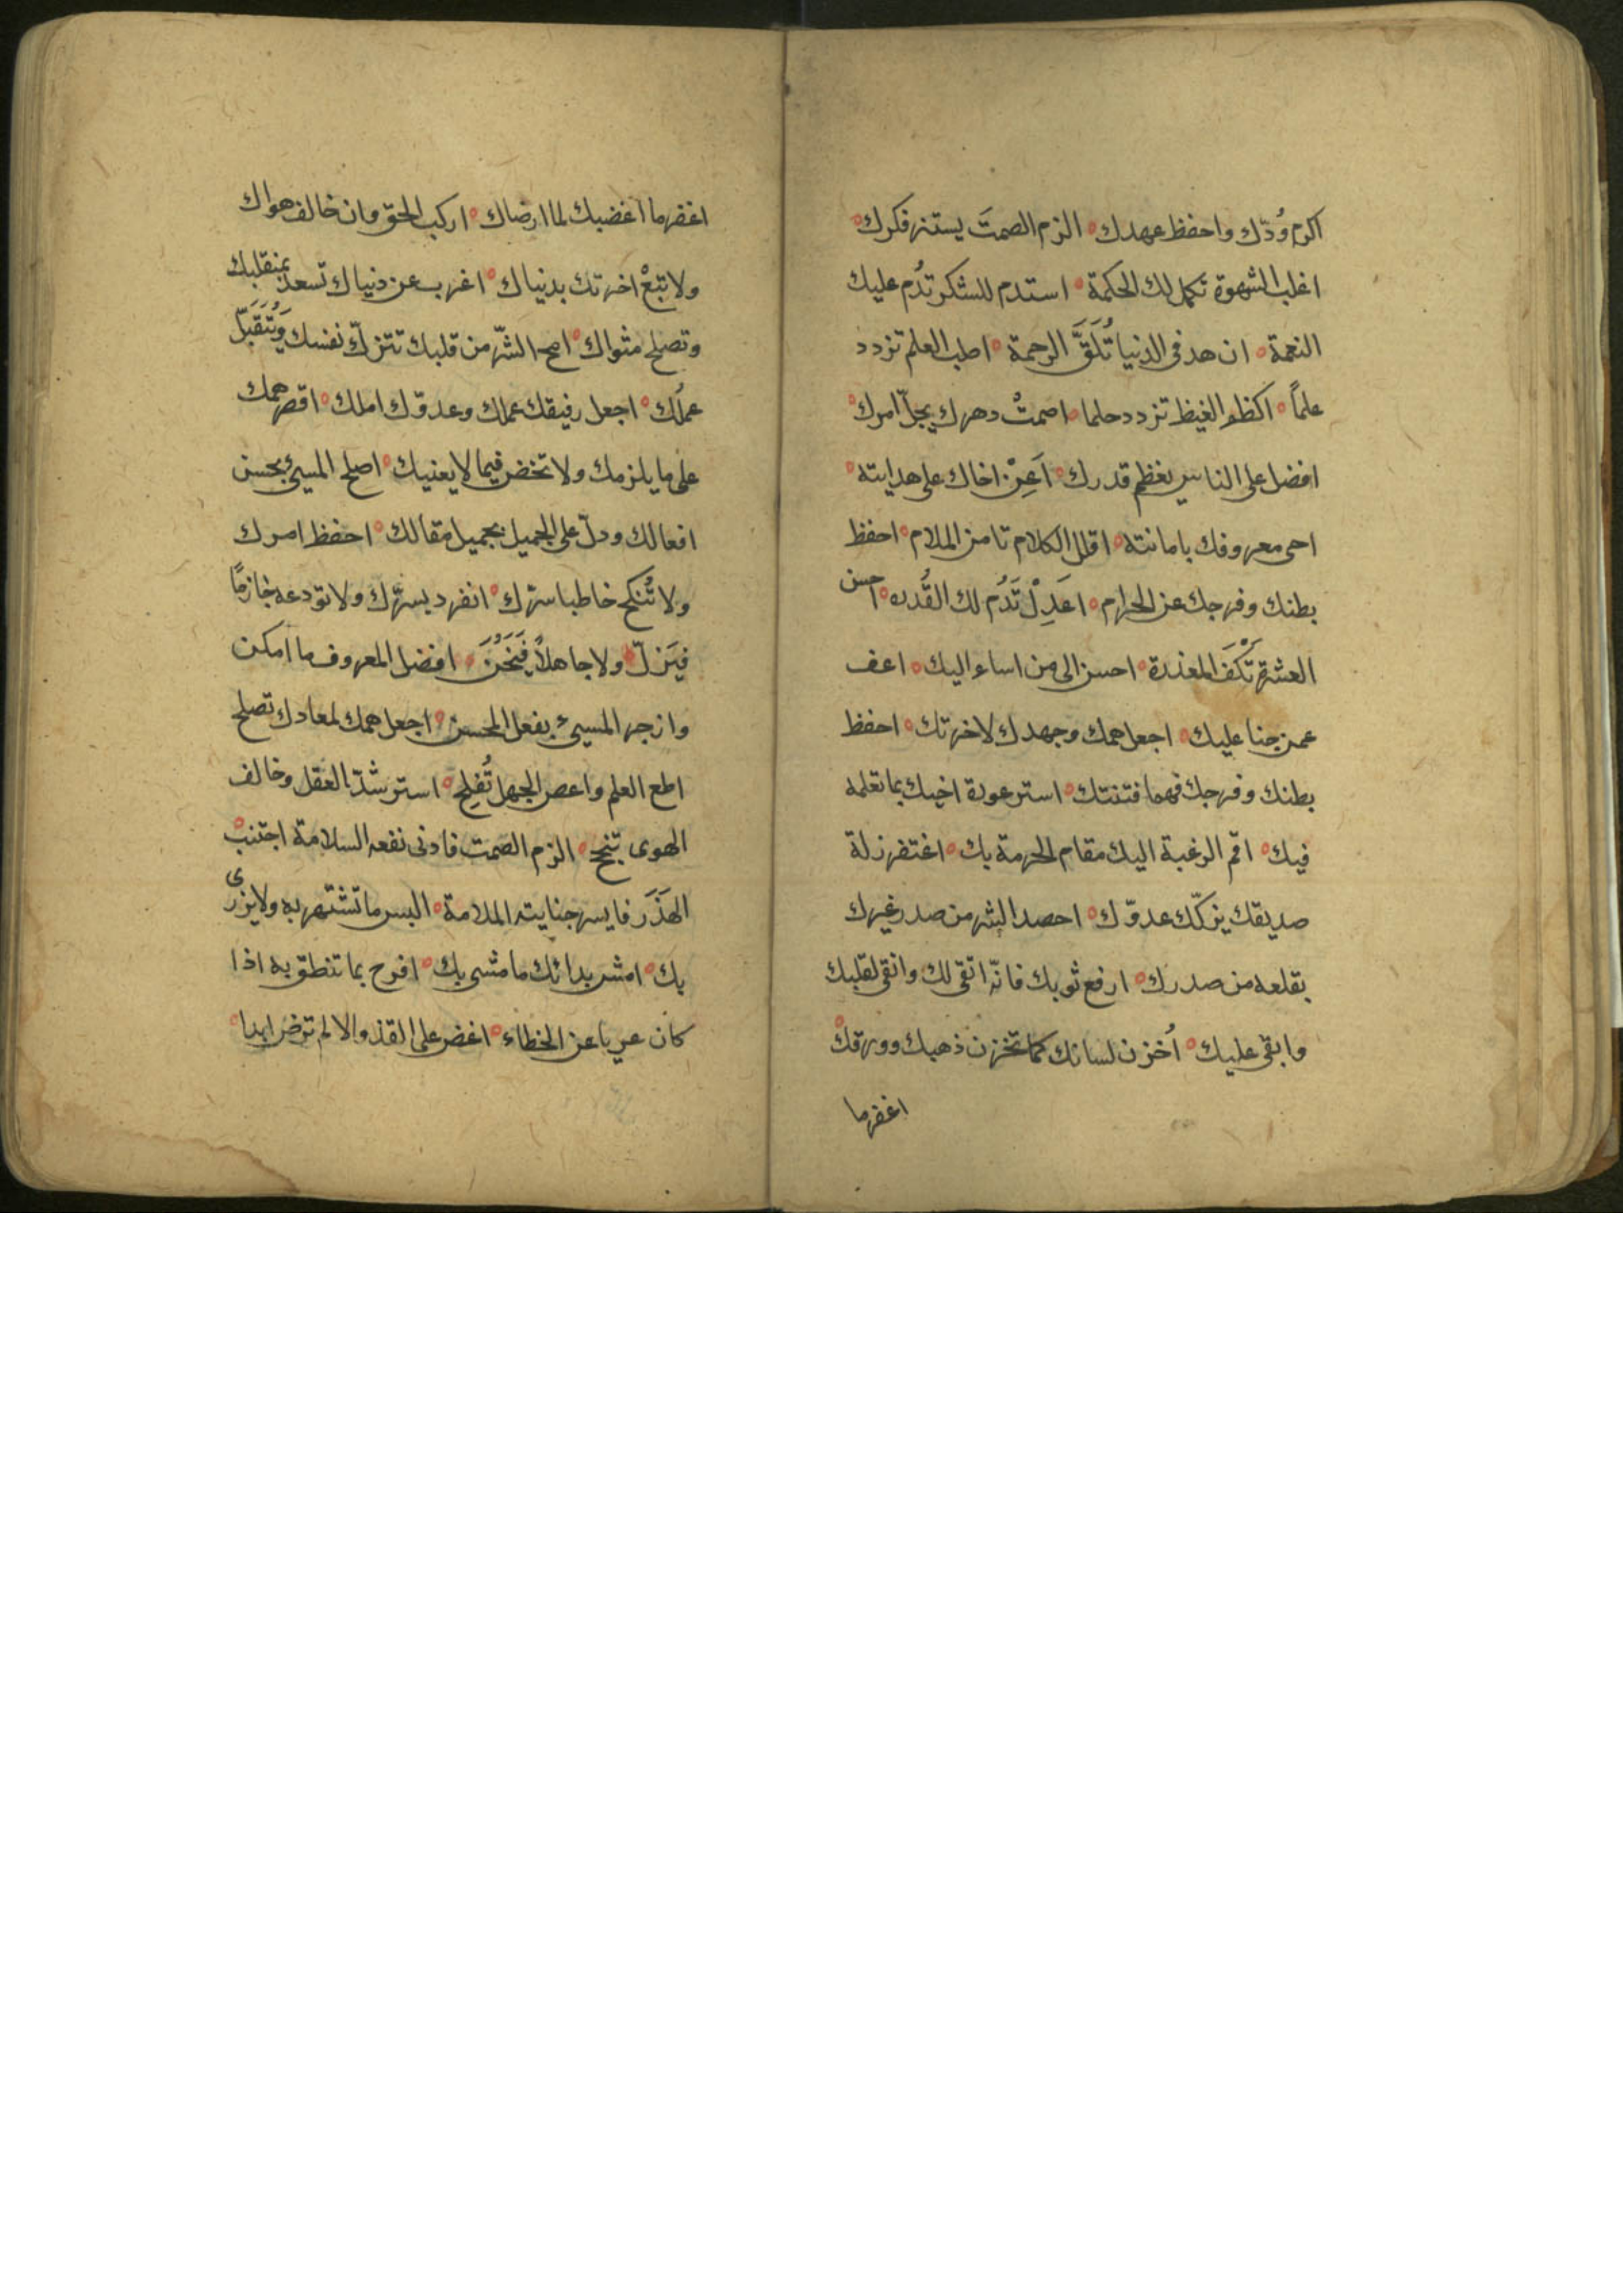 اكرم وُدّك واحفظ عهدك ه الزم الصمتَ يستنر فكرك ه
اغلب الشهوة تكمل لك الحكمة ه استدم للشكر تدُم عليك
النعمة ه ازهد فى الدنيا تُلَقَّ الرحمة ه اطلب العلم تزدد
علماً ه اكظم الغيظ تزدد حلما ه اصمتْ دهرك يجلّ امرك ه
افضل على الناس يعظم قدرك ه اَعِنْ اخاك على هدايته ه
احى معروفك باماتته ه اقلل الكلام تامن الملام ه احفظ
بطنك وفرجك عن الحرام ه اعدِلْ تَدُم لك القُدره ه احسن
العشرة تُكْفَ المعذرة ه احسن الى من اساء اليك ه اعف
عمن جنا عليك ه اجعل همك وجهدك لاخرتك ه احفظ
بطنك وفرجك فهما فتنتك ه استر عورة اخيك بما تعلمه
فيك ه اقم الرغبة اليك مقام الحرمة بك ه اغتفر زلة
صديقك يزكّك عدوّك ه احصد الشر من صدر غيرك
بقلعه من صدرك ه ارفع ثوبك فانّه اتقى لك وانقى لقلبك
وابقى عليك ه اُخزن لسانك كما تخزن ذهبك وورقك ه
اغفر ما
اغفر ما اغضبك لما ارضاك ه اركب الحق وان خالف هواك
ولا تبعْ اخرتك بدنياك ه اغرب عن دنياك تسعد بمنقلبك
وتصلح مثواك ه امح الشّر من قلبك تتزكّ نفسك وَيُتَقَبّل
عملُك ه اجعل رفيقك عملك وعدوّك املك ه اقصر همك
على ما يلزمك ولا تخض فيما لا يعنيك ه اصلح المسيئ بحسن
افعالك ودلّ على الجميل بجميل مقالك ه احفظ امرك
ولا تُنكح خاطبا سرّك ه انفرد بسرّك ولا تودعه خازمًا
فيَزلّ ولا جاهلاً فيَخُنَ ه افضل المعروف ما امكن
وازجر المسيئ بفعل المحسن ه اجعل همك لمعادك تصلح
اطع العلم واعص الجهل تُفلِح ه استرشد العقل وخالف
الهوى تنجح ه الزم الصمت فادنى نفعه السلامة ه اجتنب
الهَذَر فايسر جنايته الملامة ه البس ما تشتهر به ولا يزرى
بك ه امش بدائك ما مشى بك ه افرح بما تنطق به اذا
كان عريا عن الخطاء ه اغض على القذ والا لم ترض ابدا ه